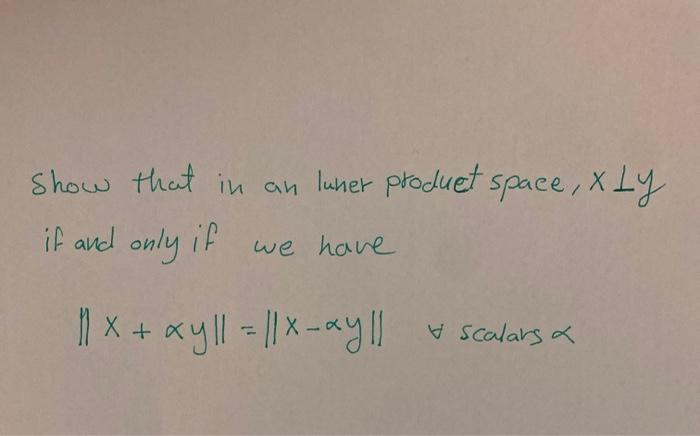 Show that in an Iuner product space, x ⊥ y
if and only if we have
‖x + αy‖ = ‖x - αy‖ ∀ scalars α